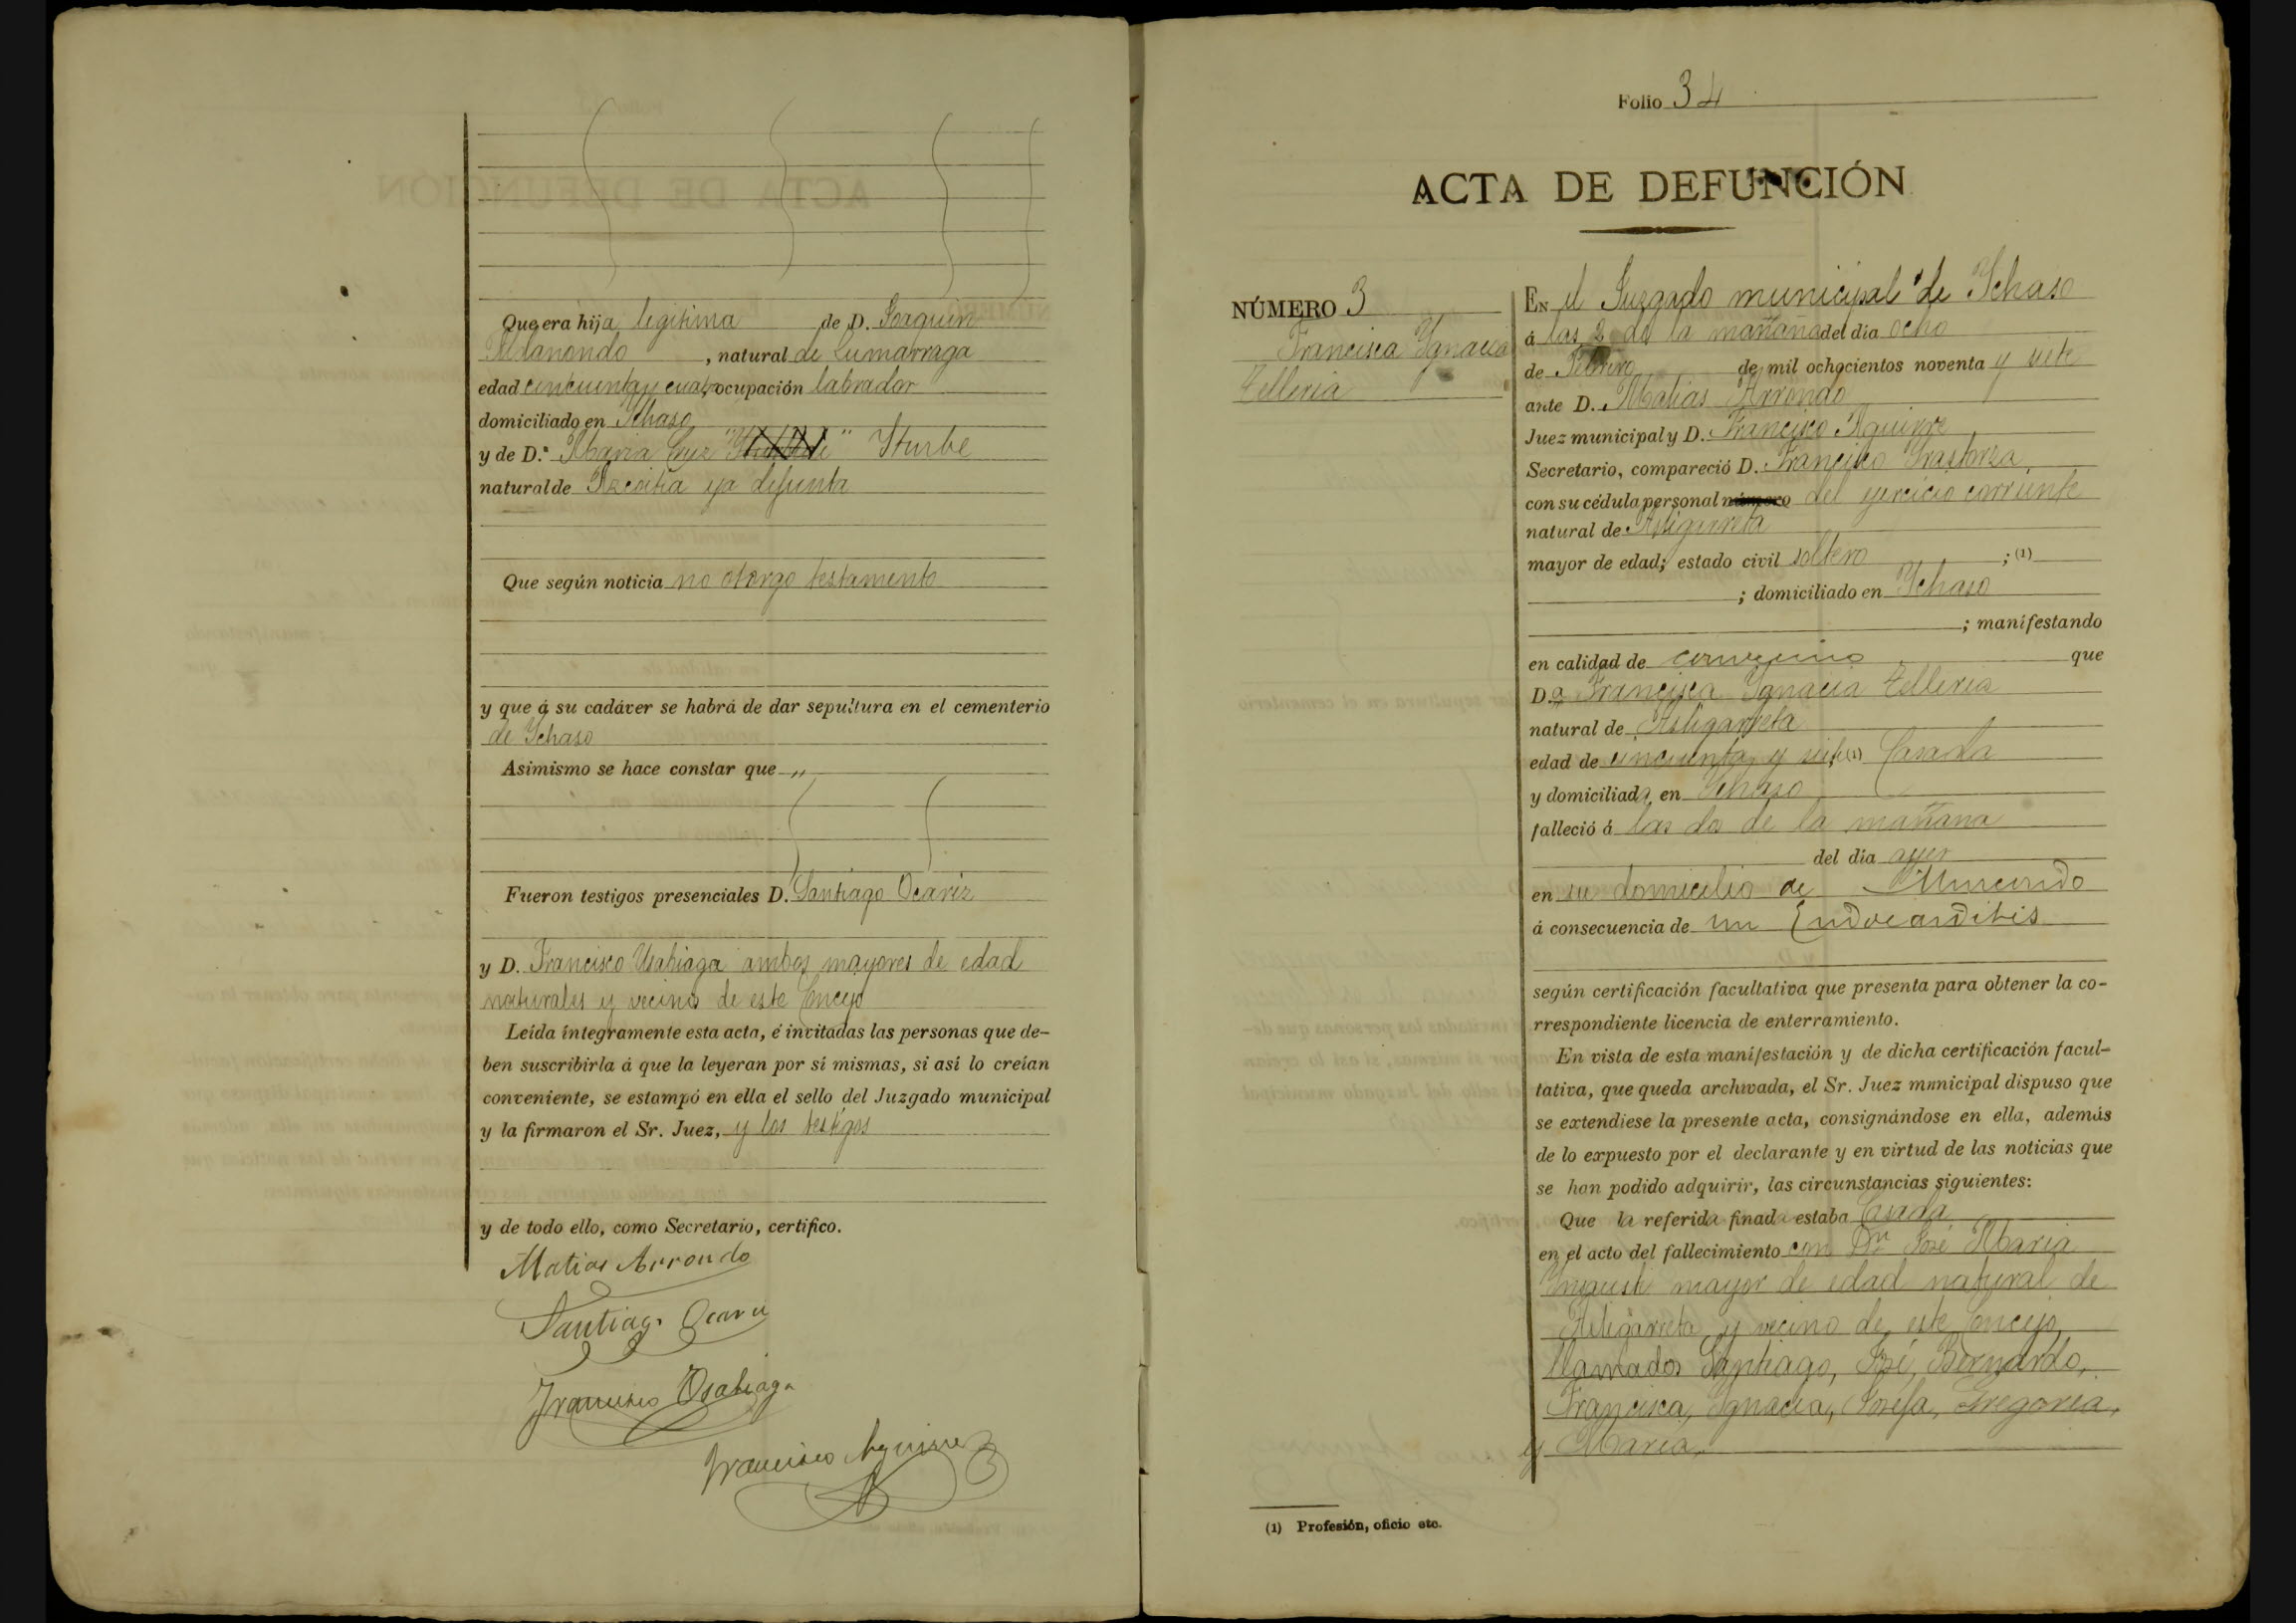 Que era hija legitima de D. Joaquin
Aldanondo, natural de Zumarraga
edad cincuenta y cuatro ocupación labrador
domiciliado en Ychaso
y de D.ª Maria Cruz " " Yturbe
natural de Azcoitia ya difunta
Que según noticia no otorgo testamento
y que á su cadáver se habrá de dar sepultura en el cementerio
de Ychaso
Asimismo se hace constar que "
Fueron testigos presenciales D. Santiago Ocariz
y D. Francisco Usabiaga ambos mayores de edad
naturales y vecinos de este Concejo
Leída íntegramente esta acta, é invitadas las personas que de-
ben suscribirla á que la leyeran por sí mismas, si así lo creían
conveniente, se estampó en ella el sello del Juzgado municipal
y la firmaron el Sr. Juez, y los testigos
y de todo ello, como Secretario, certifico.
Matias Arrondo
Santiago Ocariz
Francisco Usabiaga
Francisco Aguirre
Folio 34
ACTA DE DEFUNCIÓN
NÚMERO 3
Francisca Ygnacia
Telleria
En el Juzgado municipal de Ychaso
á las 2 de la mañana del día ocho
de Febrero de mil ochocientos noventa y siete
ante D. Matias Arrondo
Juez municipal y D. Francisco Aguirre
Secretario, compareció D. Francisco
con su cédula personal número del ejercicio corriente
natural de Astigarreta
mayor de edad; estado civil soltero ; (1)
; domiciliado en Ychaso
; manifestando
en calidad de convecino que
D.ª Francisca Ygnacia Telleria
natural de Astigarreta
edad de cincuenta y siete (1) Casada
y domiciliada en Ychaso
falleció á las dos de la mañana
del día ayer
en su domicilio de
á consecuencia de un Endocarditis
según certificación facultativa que presenta para obtener la co-
rrespondiente licencia de enterramiento.
En vista de esta manifestación y de dicha certificación facul-
tativa, que queda archivada, el Sr. Juez municipal dispuso que
se extendiese la presente acta, consignándose en ella, además
de lo expuesto por el declarante y en virtud de las noticias que
se han podido adquirir, las circunstancias siguientes:
Que la referida finada estaba Casada
en el acto del fallecimiento con Dn José Maria
mayor de edad natural de
Astigarreta y vecino de este Concejo
llamados Santiago, José, Bernardo,
Francisca, Ygnacia, Josefa, Gregoria,
y Maria,
(1) Profesión, oficio etc.